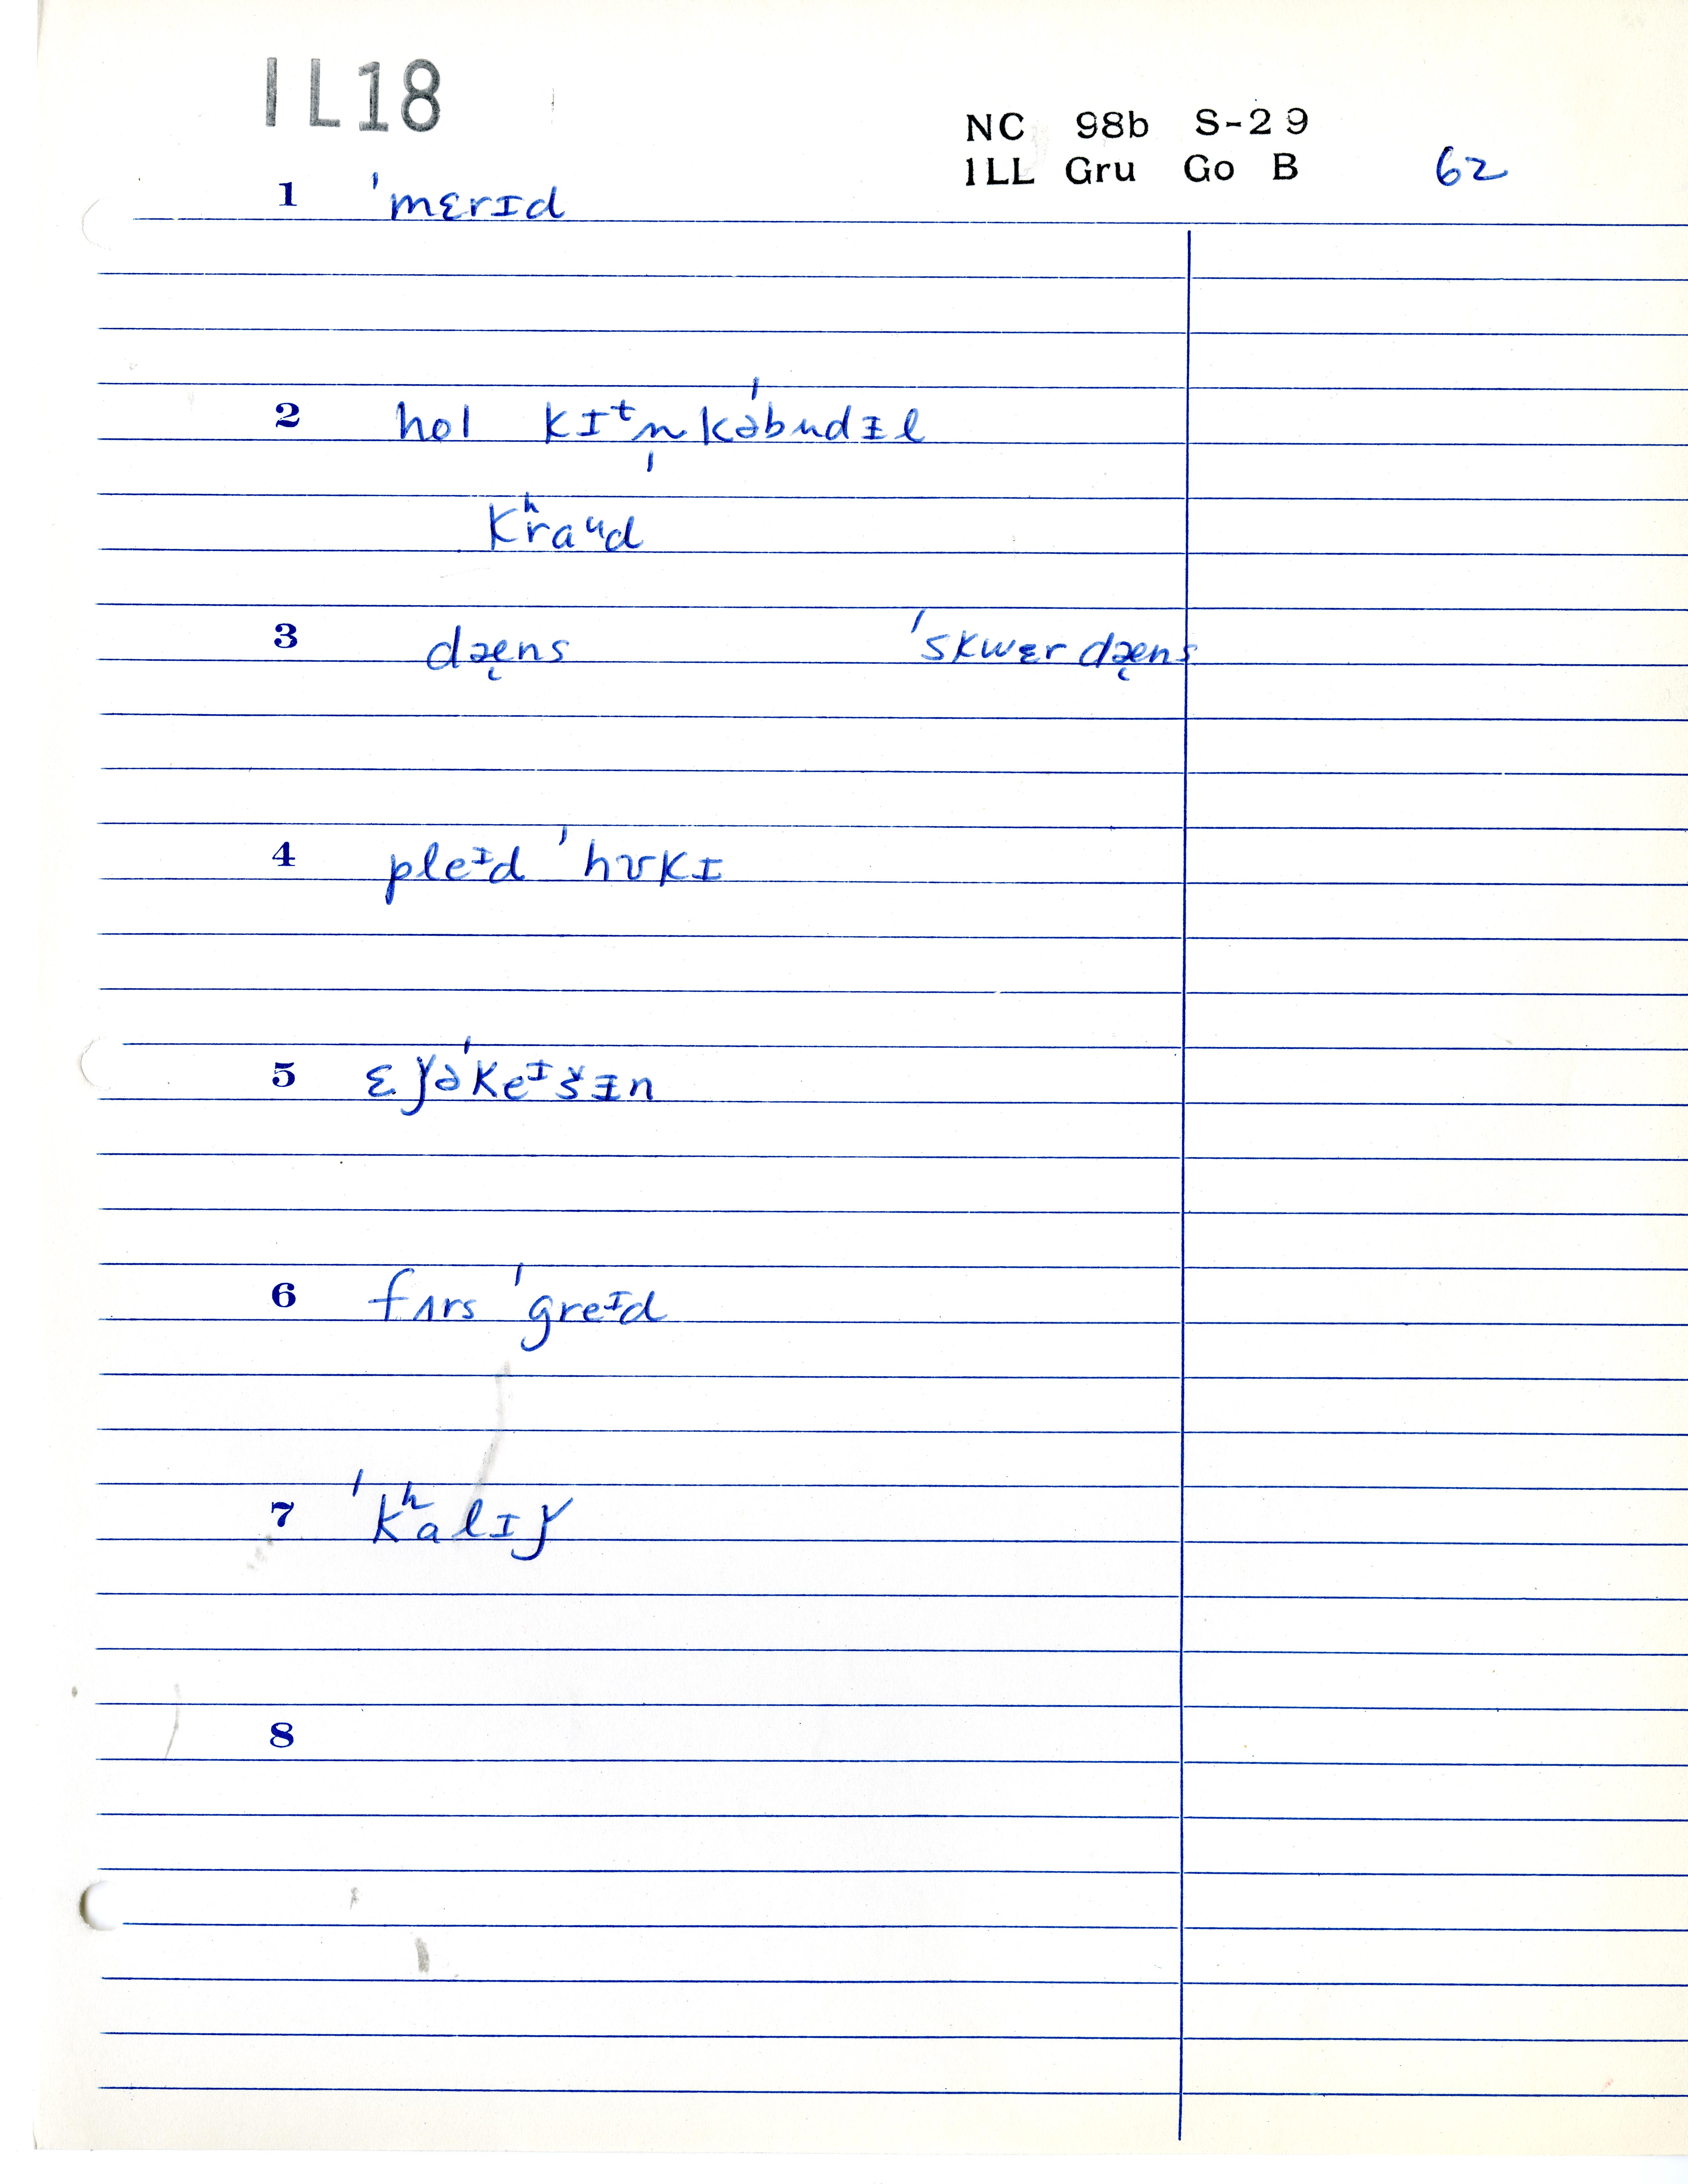 IL18
NC 98b S-29
ILL Gru Go B 62
1 ˈmɛrɪd
2 hol kɪᵗn̩kəˈbudɨl
kʰraᵘd
3 dæ̨ns ˈskwɛrdæ̨ns
4 pleᶦd ˈhʊkɪ
5 ɛǰəˈkeᶦšɨn
6 fʌrs ˈgreᶦd
7 ˈkʰalɪǰ
8